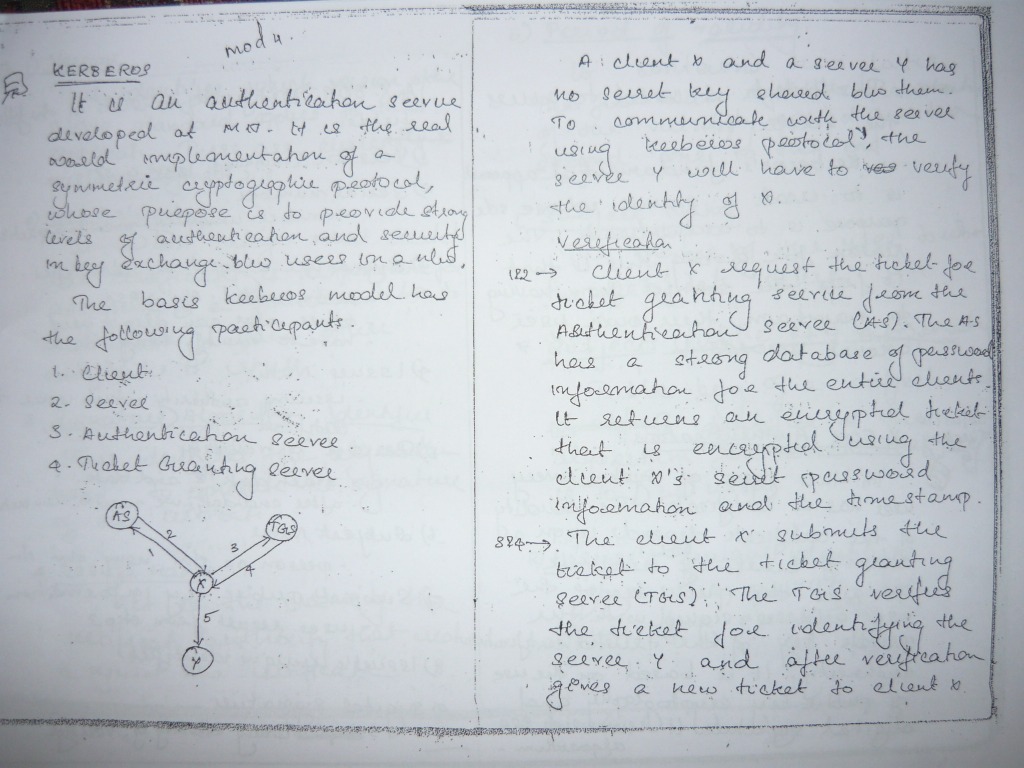 mod 4.
KERBEROS
It is an authentication server
developed at MIT. It is the real
world implementation of a
symmetric cryptographic protocol,
whose purpose is to provide strong
levels of authentication and security
in key exchange b/w users in a n/w.
The basis kerberos model has
the following participants.
1. Client
2. Server
3. Authentication server
4. Ticket Granting server
AS
TGS
2
1
3
4
X
5
Y
A client X and a server Y has
no secret key shared b/w them.
To communicate with the server
using kerberos protocol, the
server Y will have to verify
the identity of X.
Verification
1&2 → Client X request the ticket for
ticket granting service from the
Authentication server (AS). The AS
has a strong database of password
information for the entire clients.
It returns an encrypted ticket
that is encrypted using the
client X's secret password
information and the timestamp.
3&4 → The client X submits the
ticket to the ticket granting
server (TGS). The TGS verifies
the ticket for identifying the
server Y and after verification
gives a new ticket to client X